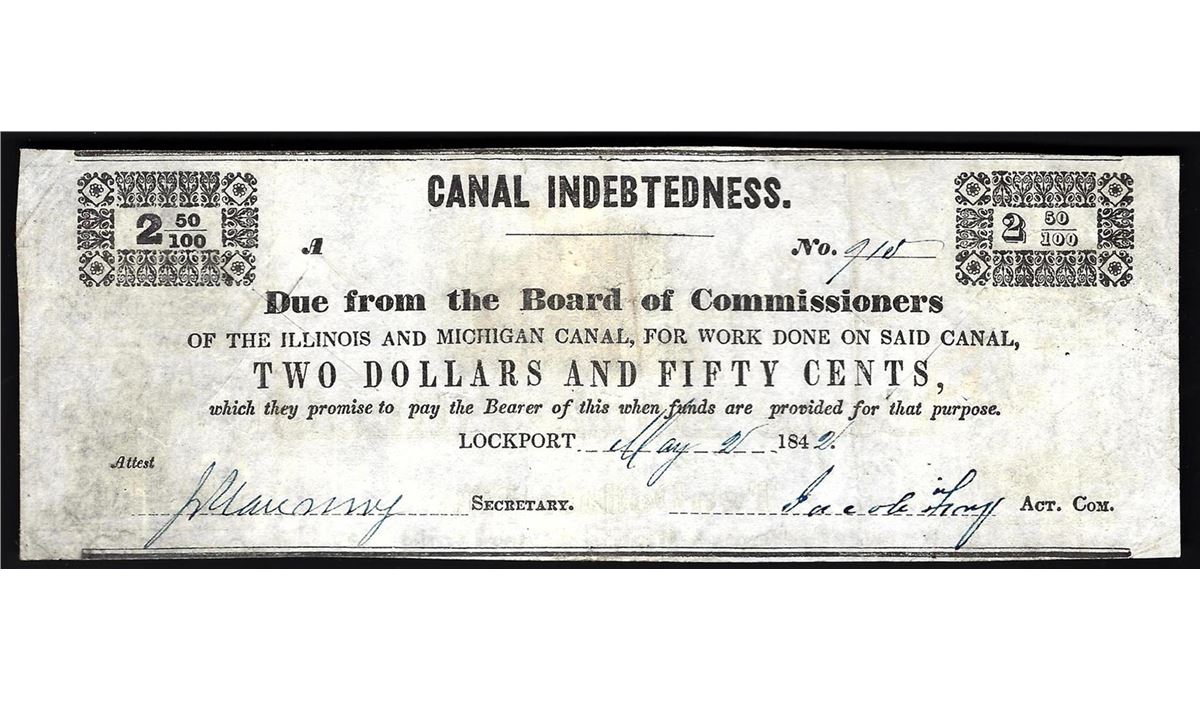 CANAL INDEBTEDNESS.
2 50/100
2 50/100
A No. 910
Due from the Board of Commissioners
OF THE ILLINOIS AND MICHIGAN CANAL, FOR WORK DONE ON SAID CANAL,
TWO DOLLARS AND FIFTY CENTS,
which they promise to pay the Bearer of this when funds are provided for that purpose.
LOCKPORT May 2 1842.
Attest
SECRETARY. Jacob Fry ACT. COM.